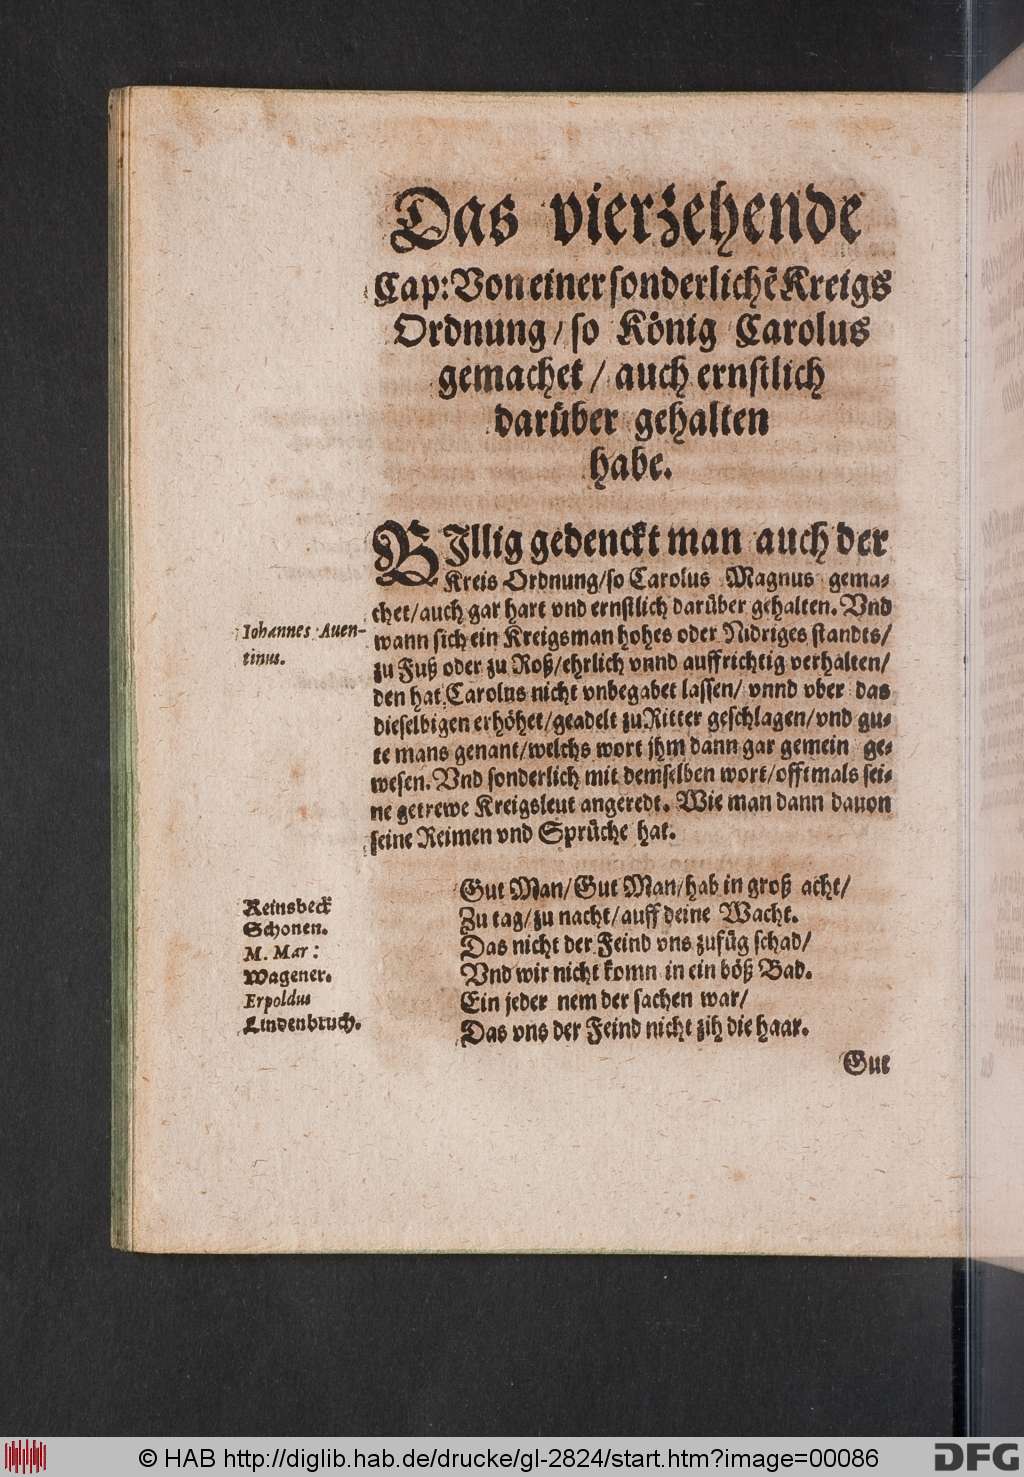 Das vierzehende
Cap: Von einer sonderlichẽ Kreigs
Ordnung / so König Carolus
gemachet / auch ernstlich
darüber gehalten
habe.
BIllig gedenckt man auch der
Kreis Ordnung/so Carolus Magnus gema-
chet/auch gar hart vnd ernstlich darüber gehalten. Vnd
wann sich ein Kreigsman hohes oder Nidriges standts/
zu Fuß oder zu Roß/ehrlich vnnd auffrichtig verhalten/
den hat Carolus nicht vnbegabet lassen/ vnnd vber das
dieselbigen erhöhet/geadelt zu Ritter geschlagen/vnd gu-
te mans genant/welchs wort jhm dann gar gemein ge-
wesen. Vnd sonderlich mit demselben wort/offtmals sei-
ne getrewe Kreigsleut angeredt. Wie man dann dauon
seine Reimen vnd Sprüche hat.
Iohannes Auen-
tinus.
Gut Man/Gut Man/hab in groß acht/
Zu tag/zu nacht/auff deine Wacht.
Das nicht der Feind vns zufüg schad/
Vnd wir nicht komn in ein böß Bad.
Ein jeder nem der sachen war/
Das vns der Feind nicht zih die haar.
Reinsbeck
Schonen.
M. Mar:
Wagener.
Erpoldus
Lindenbruch.
Gut
© HAB http://diglib.hab.de/drucke/gl-2824/start.htm?image=00086
DFG